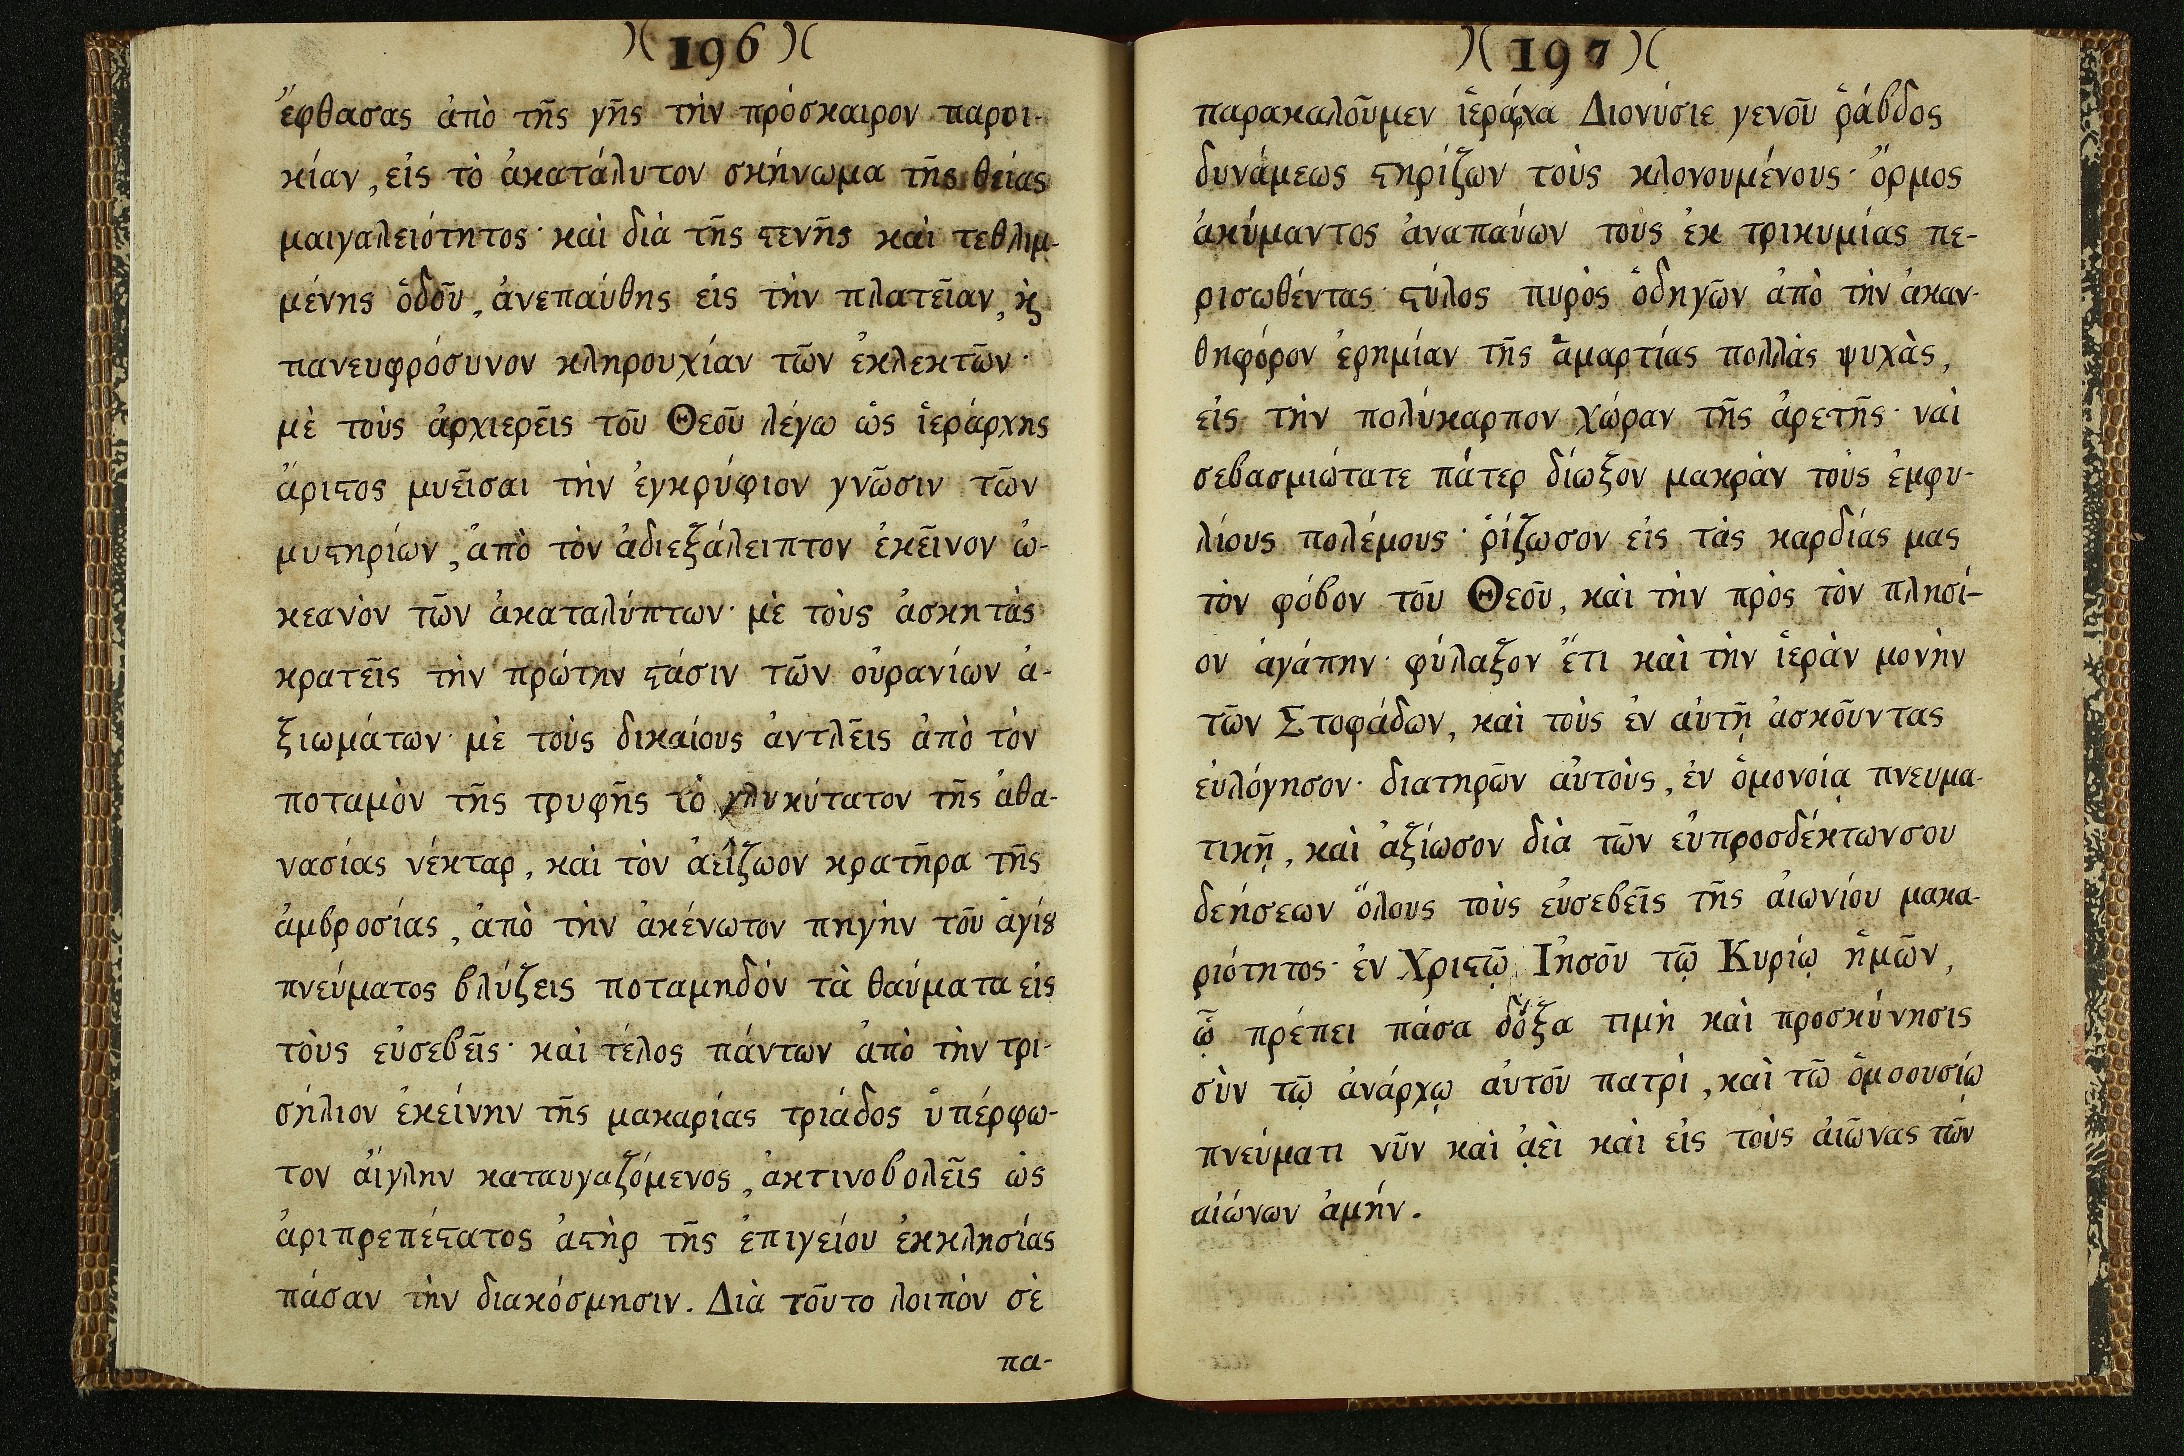 )( 196 )(
ἔφθασας ἀπὸ τῆς γῆς τὴν πρόσκαιρον παροι-
κίαν, εἰς τὸ ἀκατάλυτον σκήνωμα τῆς θείας
μαιγαλειότητος· καὶ διὰ τῆς ϛενῆς καὶ τεθλιμ-
μένης ὁδοῦ, ἀνεπαύθης εἰς τὴν πλατεῖαν, ϗ
πανευφρόσυνον κληρουχίαν τῶν ἐκλεκτῶν·
μὲ τοὺς ἀρχιερεῖς τοῦ Θεοῦ λέγω ὡς ἱεράρχης
ἄριϛος μυεῖσαι τὴν ἐγκρύφιον γνῶσιν τῶν
μυϛηρίων, ἀπὸ τὸν ἀδιεξάλειπτον ἐκεῖνον ὠ-
κεανὸν τῶν ἀκαταλύπτων· μὲ τοὺς ἀσκητὰς
κρατεῖς τὴν πρώτην ϛάσιν τῶν οὐρανίων ἀ-
ξιωμάτων· μὲ τοὺς δικαίους ἀντλεῖς ἀπὸ τὸν
ποταμὸν τῆς τρυφῆς τὸ γλυκύτατον τῆς ἀθα-
νασίας νέκταρ, καὶ τὸν ἀείζωον κρατῆρα τῆς
ἀμβροσίας, ἀπὸ τὴν ἀκένωτον πηγὴν τοῦ ἁγίȣ
πνεύματος βλύζεις ποταμηδόν τὰ θαύματα εἰς
τοὺς εὐσεβεῖς· καὶ τέλος πάντων ἀπὸ τὴν τρι-
σήλιον ἐκείνην τῆς μακαρίας τριάδος ὑπέρφω-
τον αἴγλην καταυγαζόμενος, ἀκτινοβολεῖς ὡς
ἀριπρεπέϛατος ἀϛὴρ τῆς ἐπιγείου ἐκκλησίας
πάσαν τὴν διακόσμησιν. Διὰ τοῦτο λοιπὸν σὲ
πα-
)( 197 )(
παρακαλοῦμεν ἱεράρχα Διονύσιε γενοῦ ῥάβδος
δυνάμεως ϛηρίζων τοὺς κλονουμένους· ὅρμος
ἀκύμαντος ἀναπαύων τοὺς ἐκ τρικυμίας πε-
ρισωθέντας· ϛύλος πυρὸς ὁδηγῶν ἀπὸ τὴν ἀκαν-
θηφόρον ἐρημίαν τῆς ἁμαρτίας πολλὰς ψυχὰς,
εἰς τὴν πολύκαρπον χώραν τῆς ἀρετῆς· ναὶ
σεβασμιώτατε πάτερ δίωξον μακρὰν τοὺς ἐμφυ-
λίους πολέμους· ῥίζωσον εἰς τὰς καρδίας μας
τὸν φόβον τοῦ Θεοῦ, καὶ τὴν πρὸς τὸν πλησί-
ον ἀγάπην· φύλαξον ἔτι καὶ τὴν ἱερὰν μονὴν
τῶν Στοφάδων, καὶ τοὺς ἐν αὐτῇ ἀσκοῦντας
εὐλόγησον· διατηρῶν αὐτοὺς, ἐν ὁμονοίᾳ πνευμα-
τικῇ, καὶ ἀξίωσον διὰ τῶν εὐπροσδέκτωνσου
δεήσεων ὅλους τοὺς εὐσεβεῖς τῆς αἰωνίου μακα-
ριότητος· ἐν Χριϛῷ Ἰησοῦ τῷ Κυρίῳ ἡμῶν,
ᾧ πρέπει πάσα δόξα τιμὴ καὶ προσκύνησις
σὺν τῷ ἀνάρχῳ αὐτοῦ πατρὶ, καὶ τῶ ὁμοουσίῳ
πνεύματι νῦν καὶ ἀεὶ καὶ εἰς τοὺς αἰῶνας τῶν
αἰώνων ἀμήν.